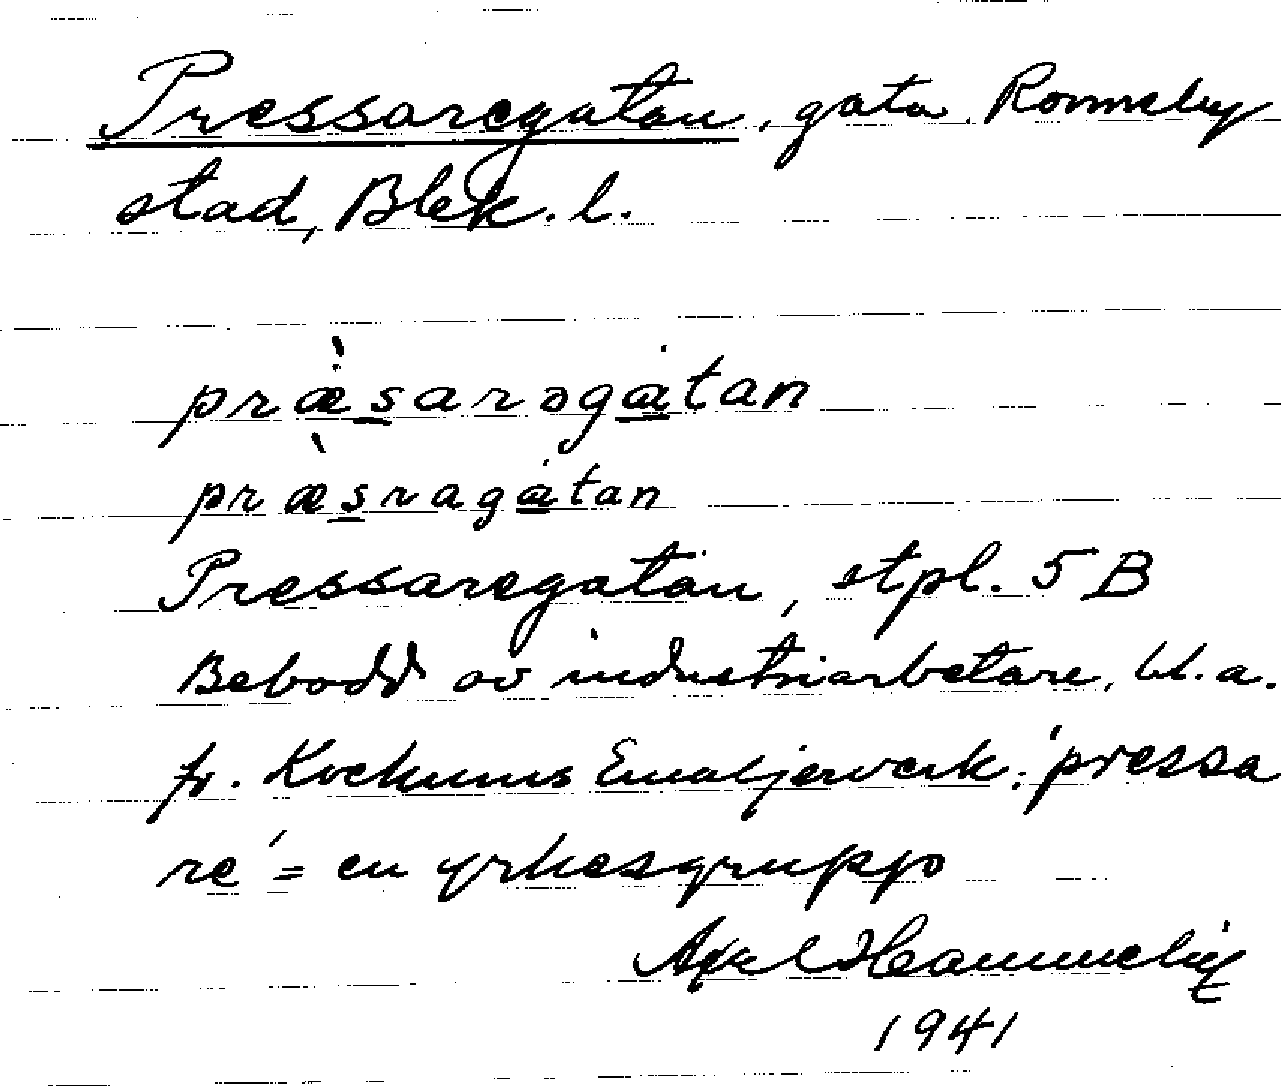 Pressaregatan, gata. Ronneby
stad, Blek. l.
præ̀sarəgatan
præ̀sragatan
Pressaregatan, stpl. 5 B
Bebodd av industriarbetare, bl. a.
fr. Kockums Emaljerverk; 'pressa
re' = en yrkesgrupp
Axel
1941